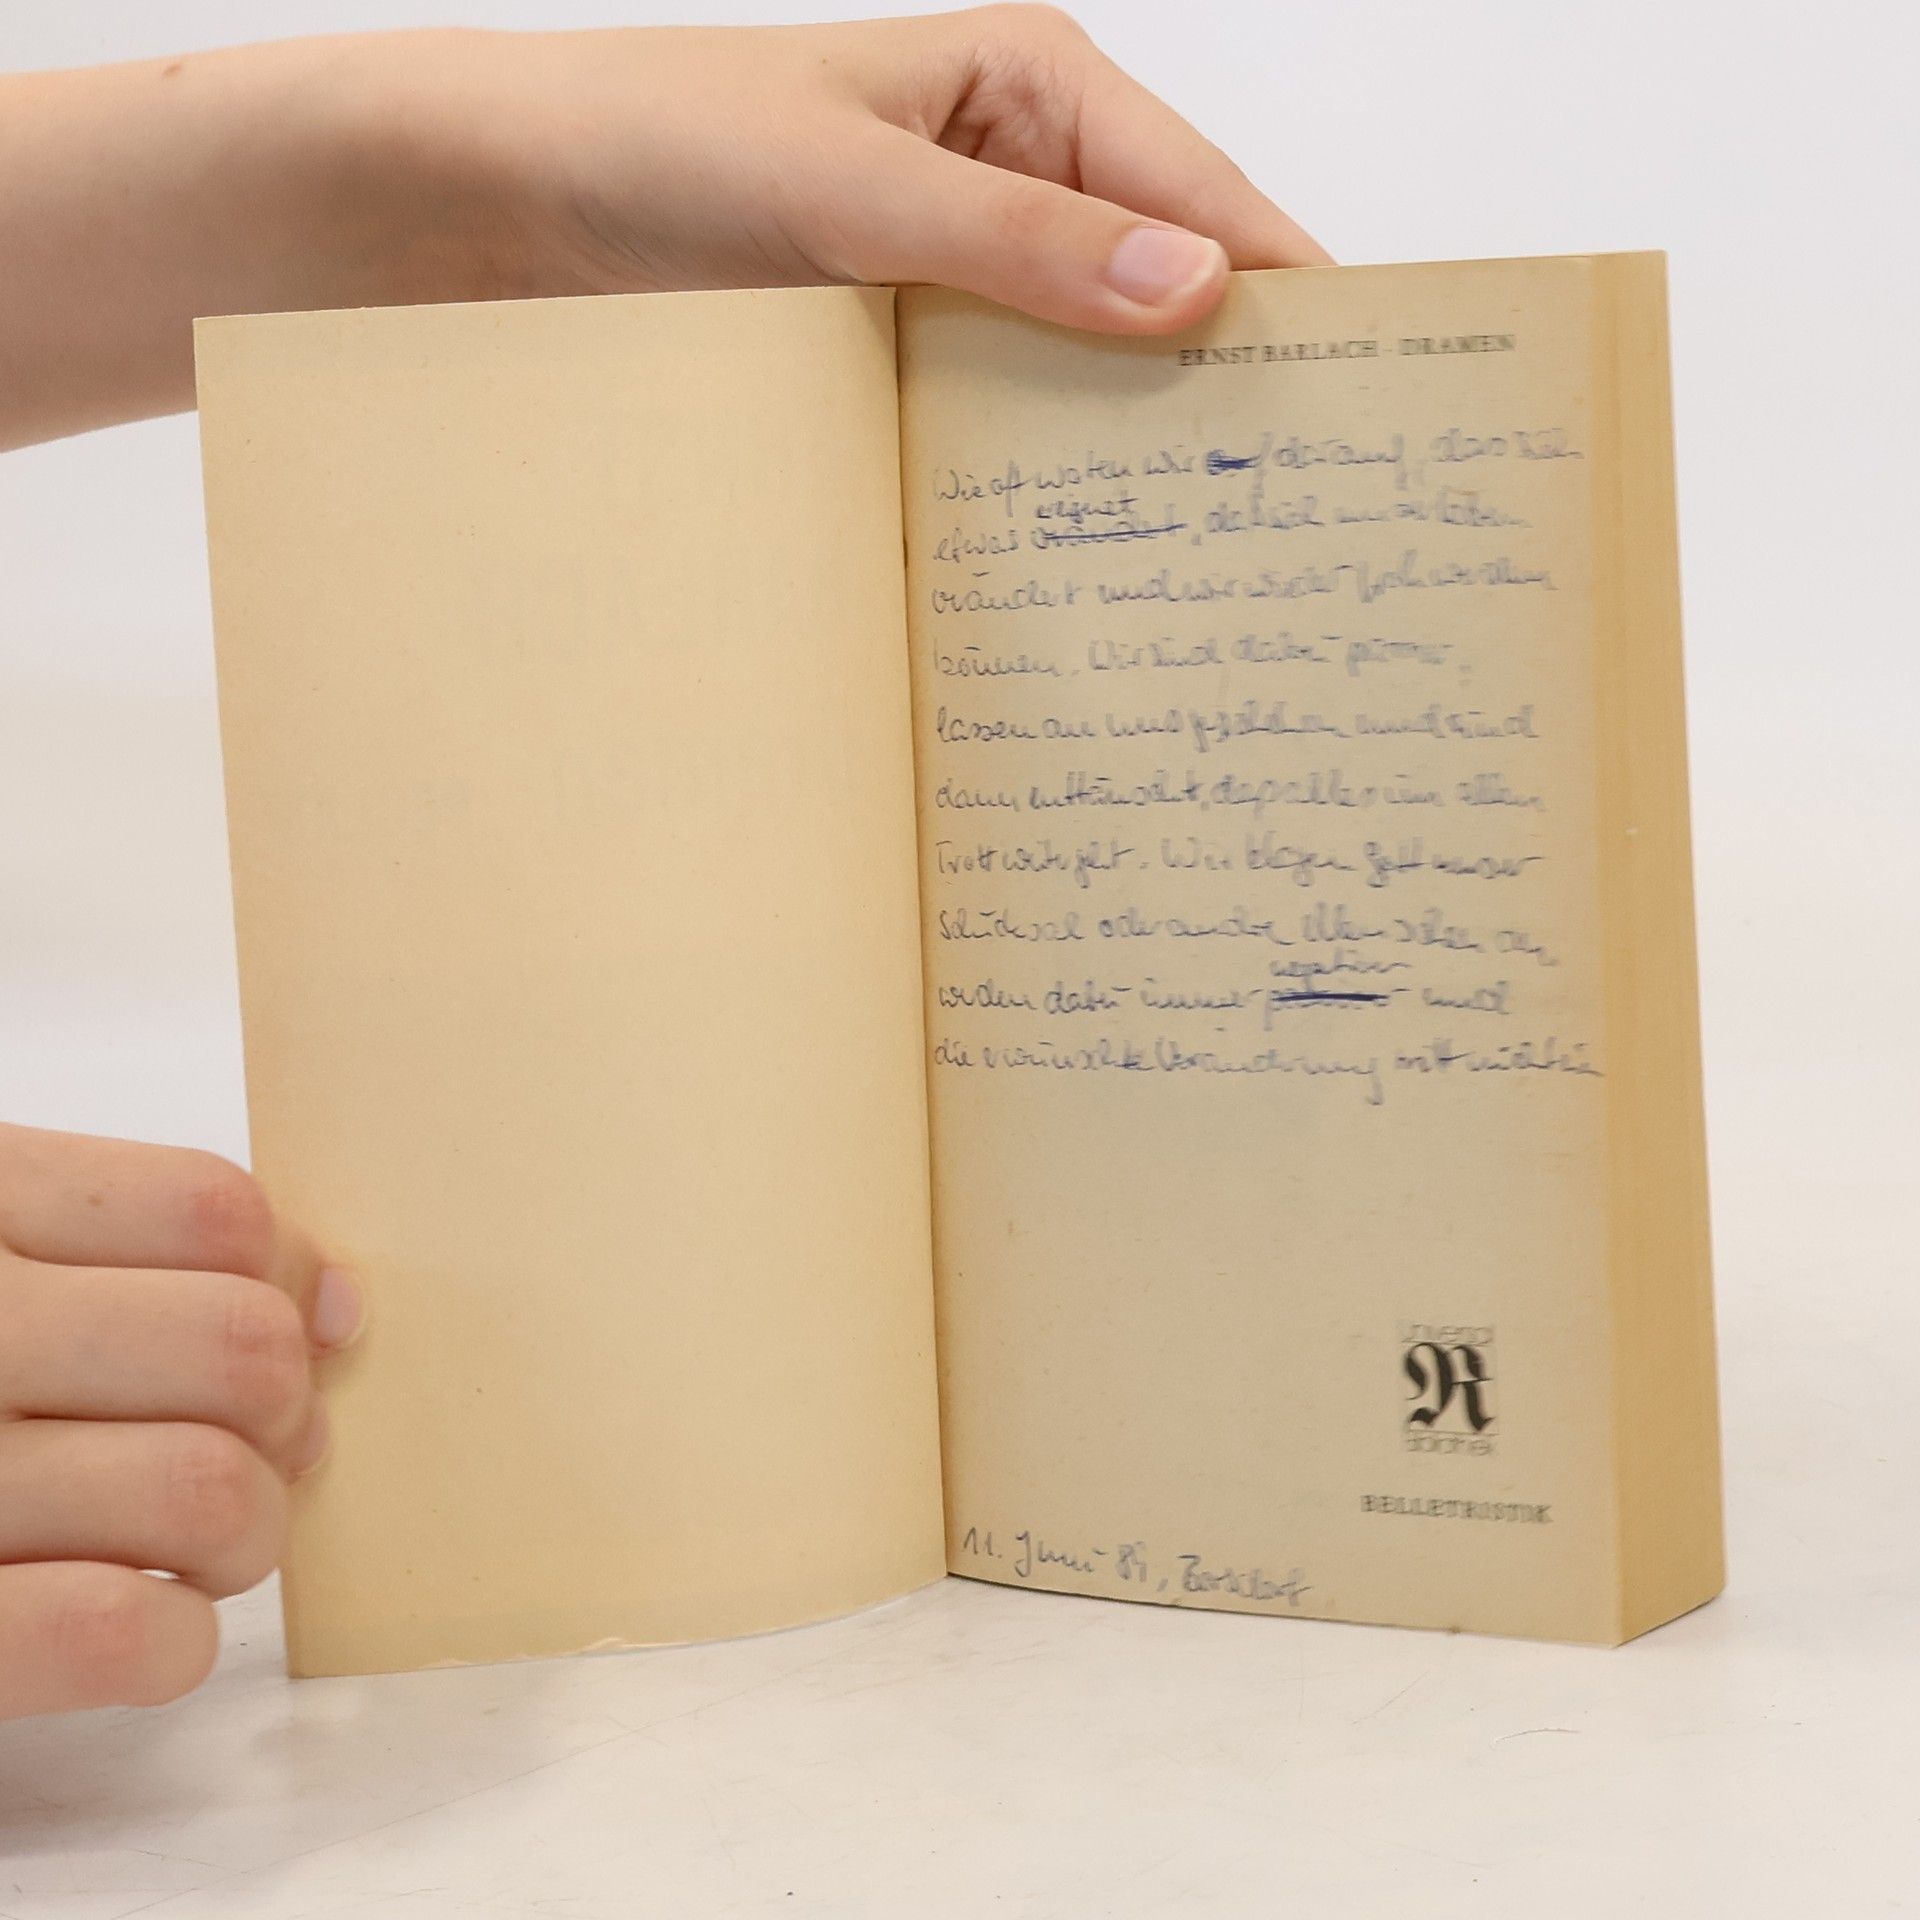 ERNST BARLACH · DRAMEN
Wie oft warten wir darauf, dass sich
ereignet
etwas verändert, daß sich unser Leben
verändert und wir wieder froh werden
können. Wir sind dabei passiv,
lassen an uns geschehen und sind
dann enttäuscht, daß alles im alten
Trott weitergeht. Wir klagen Gott unser
Schicksal oder andre Menschen an,
negativer
werden dabei immer und
die erwünschte Veränderung tritt nicht ein
R
BELLETRISTIK
11. Juni 84,